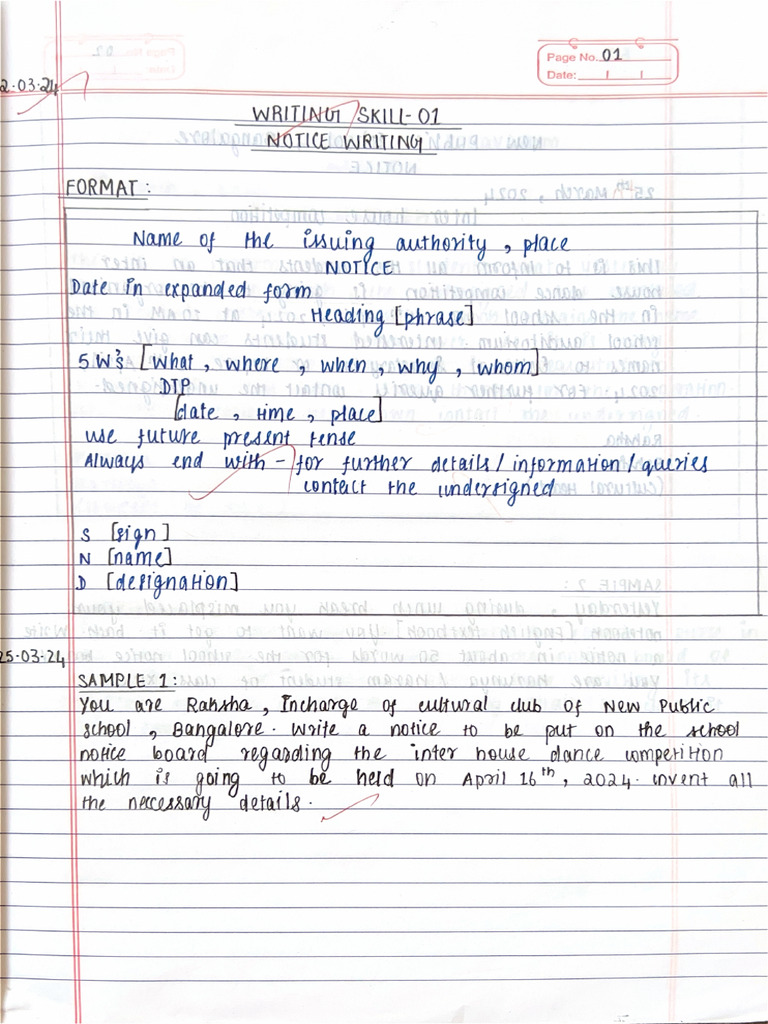 Page No. 01
Date:
2.03.24
WRITING SKILL-01
NOTICE WRITING
FORMAT:
Name of the issuing authority, place
NOTICE
Date in expanded form
Heading [phrase]
5 W's [what, where, when, why, whom]
DTP
[date, time, place]
use future present tense
Always end with - for further details/information/queries
contact the undersigned
S [sign]
N [name]
D [designation]
25-03-24
SAMPLE 1:
You are Raksha, Incharge of cultural club of New Public
school, Bangalore. Write a notice to be put on the school
notice board regarding the inter house dance competition
which is going to be held on April 16th, 2024. invent all
the neccessary details.